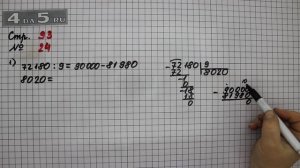 4DA5.RU
Стр. 93
№ 24
1) 72180 : 9 = 90000 - 81980
8020 =
- 72180 | 9
72 | 8020
18
18
0
- 90000
81980
0